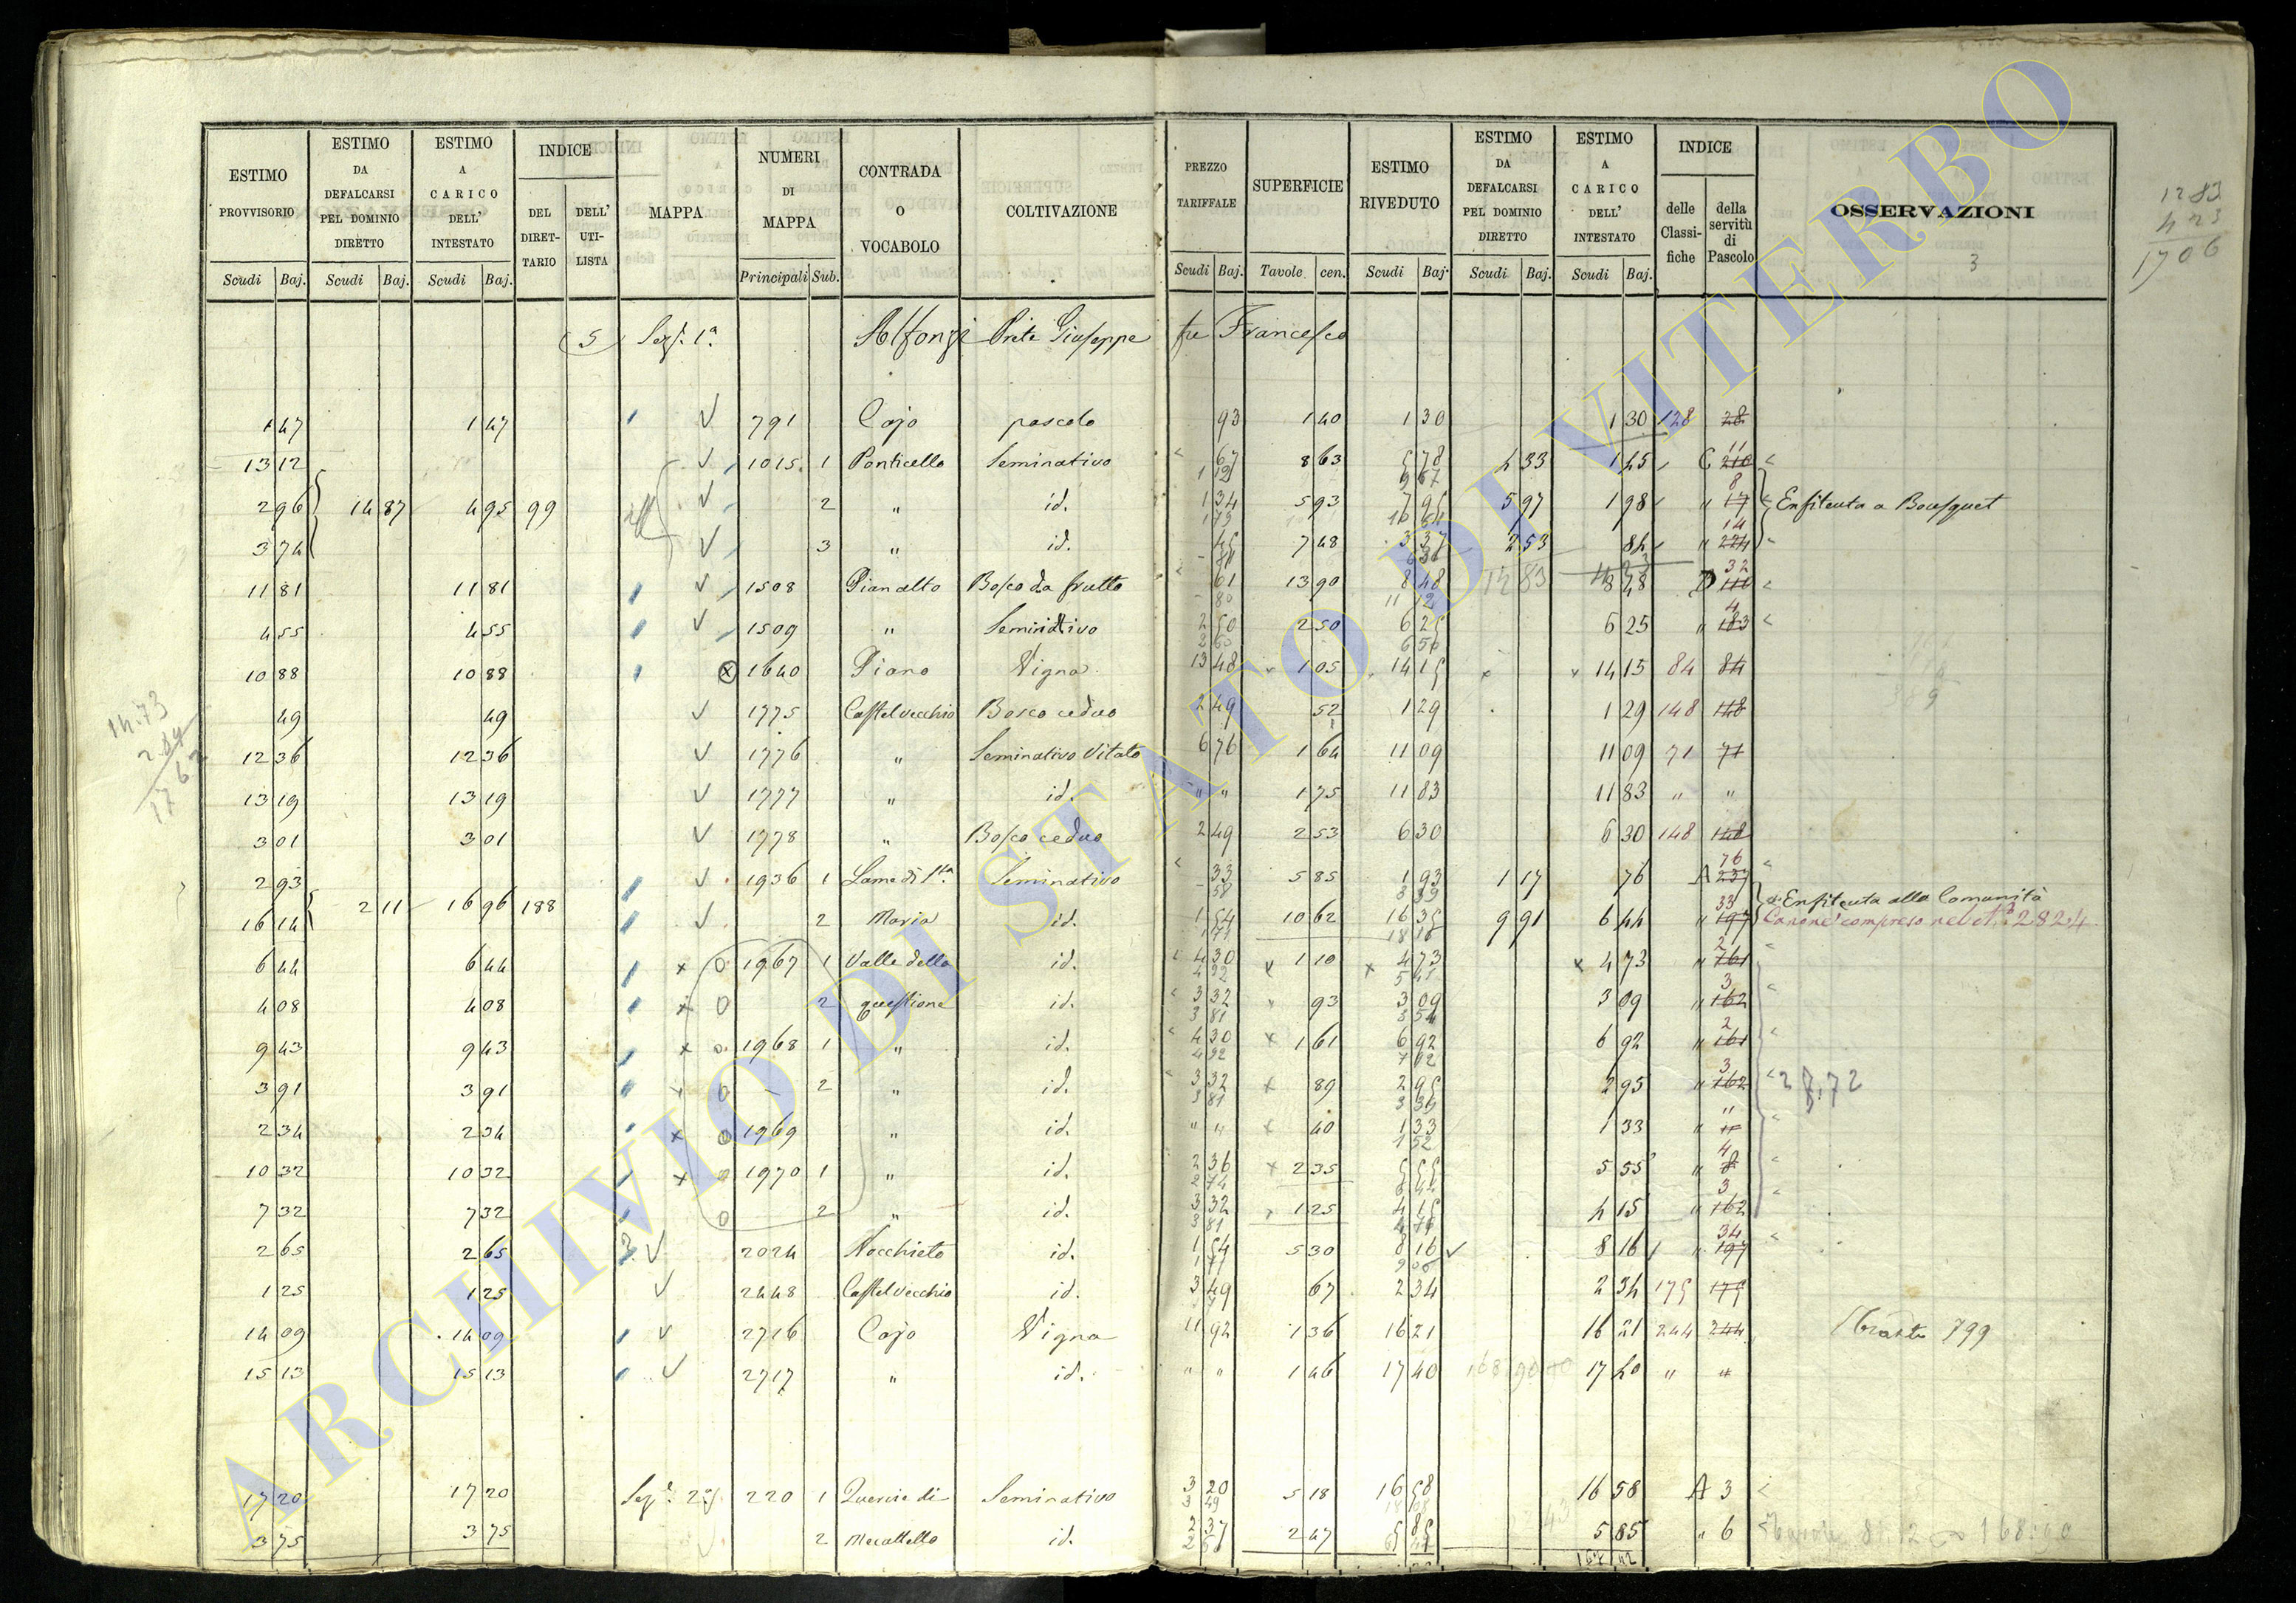 ESTIMO PROVVISORIO Scudi Baj. | ESTIMO DA DEFALCARSI PEL DOMINIO DIRETTO Scudi Baj. | ESTIMO A CARICO DELL' INTESTATO Scudi Baj. | INDICE DEL DIRETTARIO | DELL' UTILISTA | MAPPA | NUMERI DI MAPPA Principali Sub. | CONTRADA O VOCABOLO | COLTIVAZIONE | PREZZO TARIFFALE Scudi Baj. | SUPERFICIE Tavole cen. | ESTIMO RIVEDUTO Scudi Baj. | ESTIMO DA DEFALCARSI PEL DOMINIO DIRETTO Scudi Baj. | ESTIMO A CARICO DELL' INTESTATO Scudi Baj. | INDICE delle Classifiche | della servitù di Pascolo | OSSERVAZIONI
1283
423
1706
3
5 Sez. 1a Alfonzi Prete Giuseppe fu Francesco
1 47 1 47 791 Cajo pascolo 93 1 40 1 30 1 30 128 28
13 12 1015 1 Ponticello Seminativo 67 8 63 5 78 4 33 1 45 C 11
2 96 14 87 4 95 99 2 " id. 1 34 5 93 7 95 5 97 1 98 " 17 8 Enfiteuta a Bousquet
3 74 3 " id. 45 7 48 3 37 2 53 84 " 224 14
11 81 11 81 1508 Pianalto Bosco da frutto 61 13 90 8 48 8 48 D 32
4 55 4 55 1509 " Seminativo 2 50 2 50 6 25 6 25 " 183 4
10 88 10 88 1640 Piano Vigna 13 48 1 05 14 15 14 15 84 84
49 49 1775 Castelvecchio Bosco ceduo 2 49 52 1 29 1 29 148 148
12 36 12 36 1776 " Seminativo Vitato 6 76 1 64 11 09 11 09 71 71
13 19 13 19 1777 " id. " " 1 75 11 83 11 83 " "
3 01 3 01 1778 " Bosco ceduo 2 49 2 53 6 30 6 30 148 148
2 93 1936 1 Lame di Sta Seminativo 33 5 85 1 93 1 17 76 A 237 76
16 14 2 11 16 96 188 2 Maria id. 1 54 10 62 16 35 9 91 6 44 " 197 33 Enfiteuta alla Comunità
Canone compreso nel 2824
6 44 6 44 1967 1 Valle della id. 4 30 1 10 4 73 4 73 " 161 2
4 08 4 08 2 questione id. 3 32 93 3 09 3 09 " 162 3
9 43 9 43 1968 1 " id. 4 30 1 61 6 92 6 92 " 161 2
3 91 3 91 2 " id. 3 32 89 2 95 2 95 " 162 3
2 34 2 34 1969 " id. " " 40 1 33 1 33 " "
10 32 10 32 1970 1 " id. 2 36 2 35 5 55 5 55 " 8 4
7 32 7 32 2 " id. 3 32 1 25 4 15 4 15 " 162 3
2 65 2 65 2024 Nocchieto id. 1 54 5 30 8 16 8 16 " 197 34
1 25 1 25 2448 Castelvecchio id. 3 49 67 2 34 2 34 175 175
14 09 14 09 2716 Cajo Vigna 11 92 1 36 16 21 16 21 244 244
15 13 15 13 2717 " id. " " 1 46 17 40 17 40 " "
17 20 17 20 Sez. 2a 220 1 Quercie di Seminativo 3 20 5 18 16 58 16 58 A 3
3 75 3 75 2 Mecattello id. 2 37 2 47 5 85 5 85 " 6
ARCHIVIO DI STATO DI VITERBO